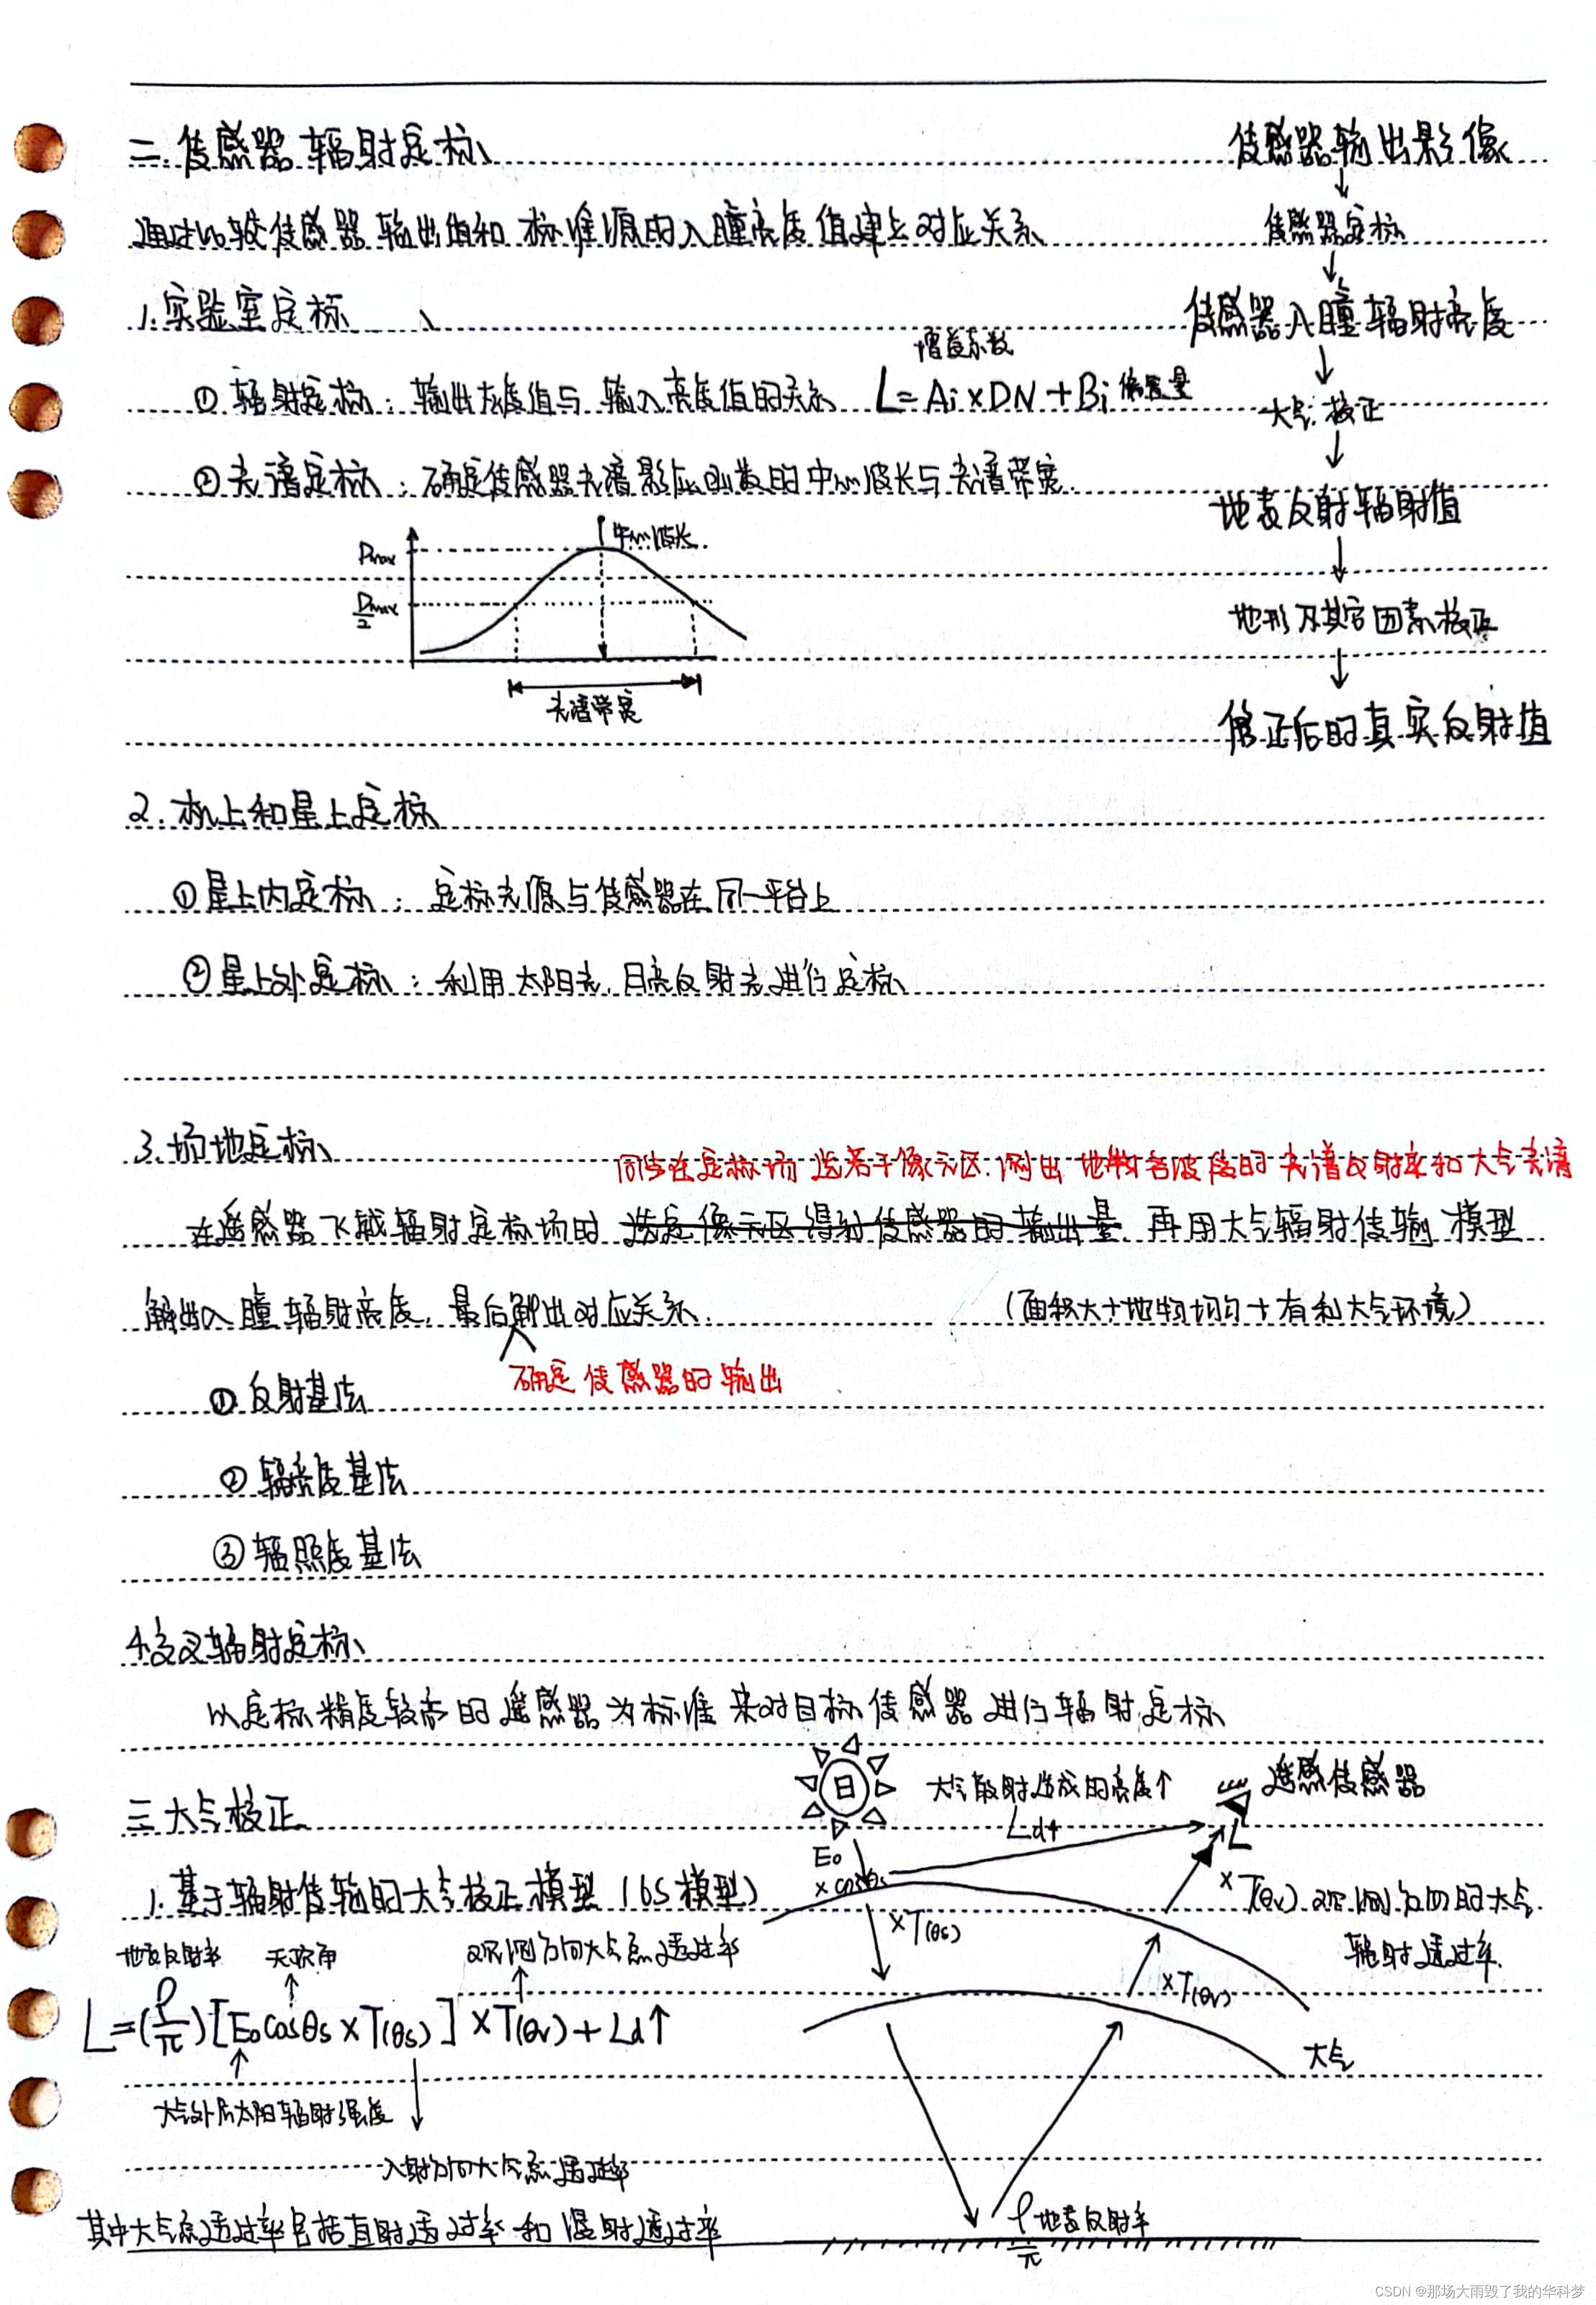 二.传感器辐射定标
通过比较传感器输出值和标准源的入瞳亮度值建立对应关系
1.实验室定标
增益系数
①辐射定标:输出灰度值与输入亮度值的关系 L=Ai×DN+Bi 偏置量
②光谱定标:确定传感器光谱影应函数的中心波长与光谱带宽.
Pmax
Pmax/2
中心波长.
光谱带宽
传感器输出影像
↓
传感器定标
↓
传感器入瞳辐射亮度
↓
大气校正
↓
地表反射辐射值
↓
地形及其它因素校正
↓
修正后的真实反射值
2.机上和星上定标
①星上内定标:定标光源与传感器在同一平台上
②星上外定标:利用太阳光.月亮反射光进行定标
3.场地定标
同步在定标场选若干像元区.测出地物各波段的光谱反射率和大气光谱
在遥感器飞越辐射定标场时 选定像元区得到传感器的输出量 再用大气辐射传输模型
解出入瞳辐射亮度,最后解出对应关系. (面积大+地物均匀+有利大气环境)
确定传感器的输出
①反射基法
②辐亮度基法
③辐照度基法
4.交叉辐射定标
以定标精度较高的遥感器为标准来对目标传感器进行辐射定标
三大气校正
1.基于辐射传输的大气校正模型(6S模型)
地表反射率 天顶角 观测方向大气总透过率
L=(ρ/π)[E₀cosθs×T(θs)]×T(θv)+Ld↑
大气外层太阳辐射强度
入射方向大气总透过率
其中大气总透过率包括直射透过率和漫射透过率
日
大气散射造成的亮度↑
Ld↑
遥感传感器
L
E₀
×cosθs
×T(θs)
×T(θv).观测方向的大气
辐射透过率.
×T(θv)
大气
ρ/π 地表反射率
CSDN @那场大雨毁了我的华科梦